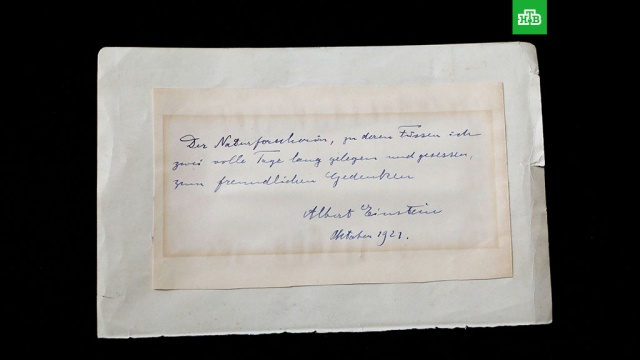 НТВ
Der Naturforscherin, zu deren Füssen ich
zwei volle Tage lang gelegen und gesessen,
zum freundlichen Gedenken
Albert Einstein
Oktober 1921.